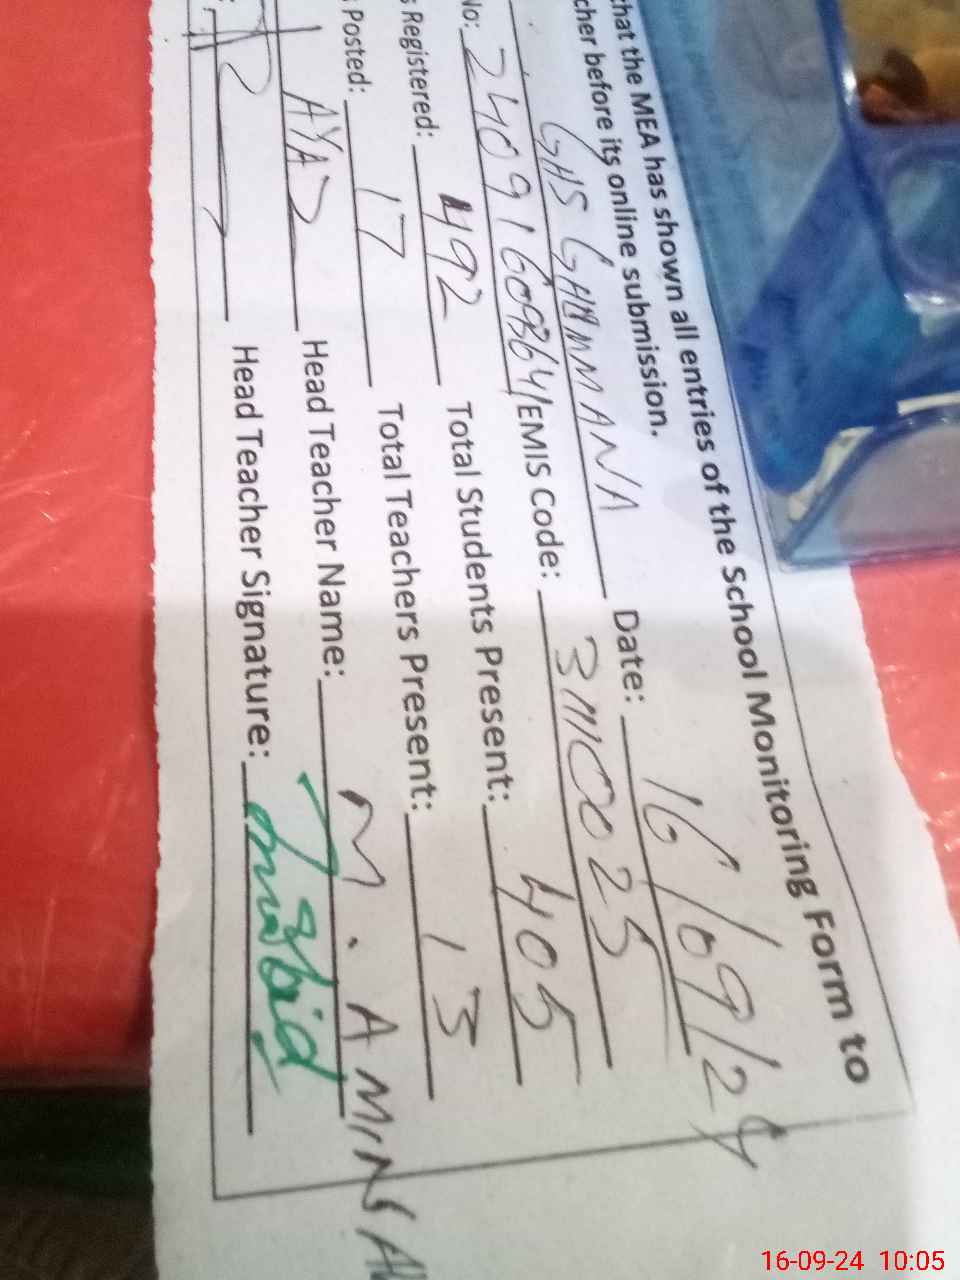 that the MEA has shown all entries of the School Monitoring Form to
cher before its online submission.
GHS GHAMMANA Date: 16/09/24
No: 24091609864/EMIS Code: 31110025
s Registered: 492 Total Students Present: 405
s Posted: 17 Total Teachers Present: 13
AYAD Head Teacher Name: M. AMIN
Head Teacher Signature:
16-09-24 10:05